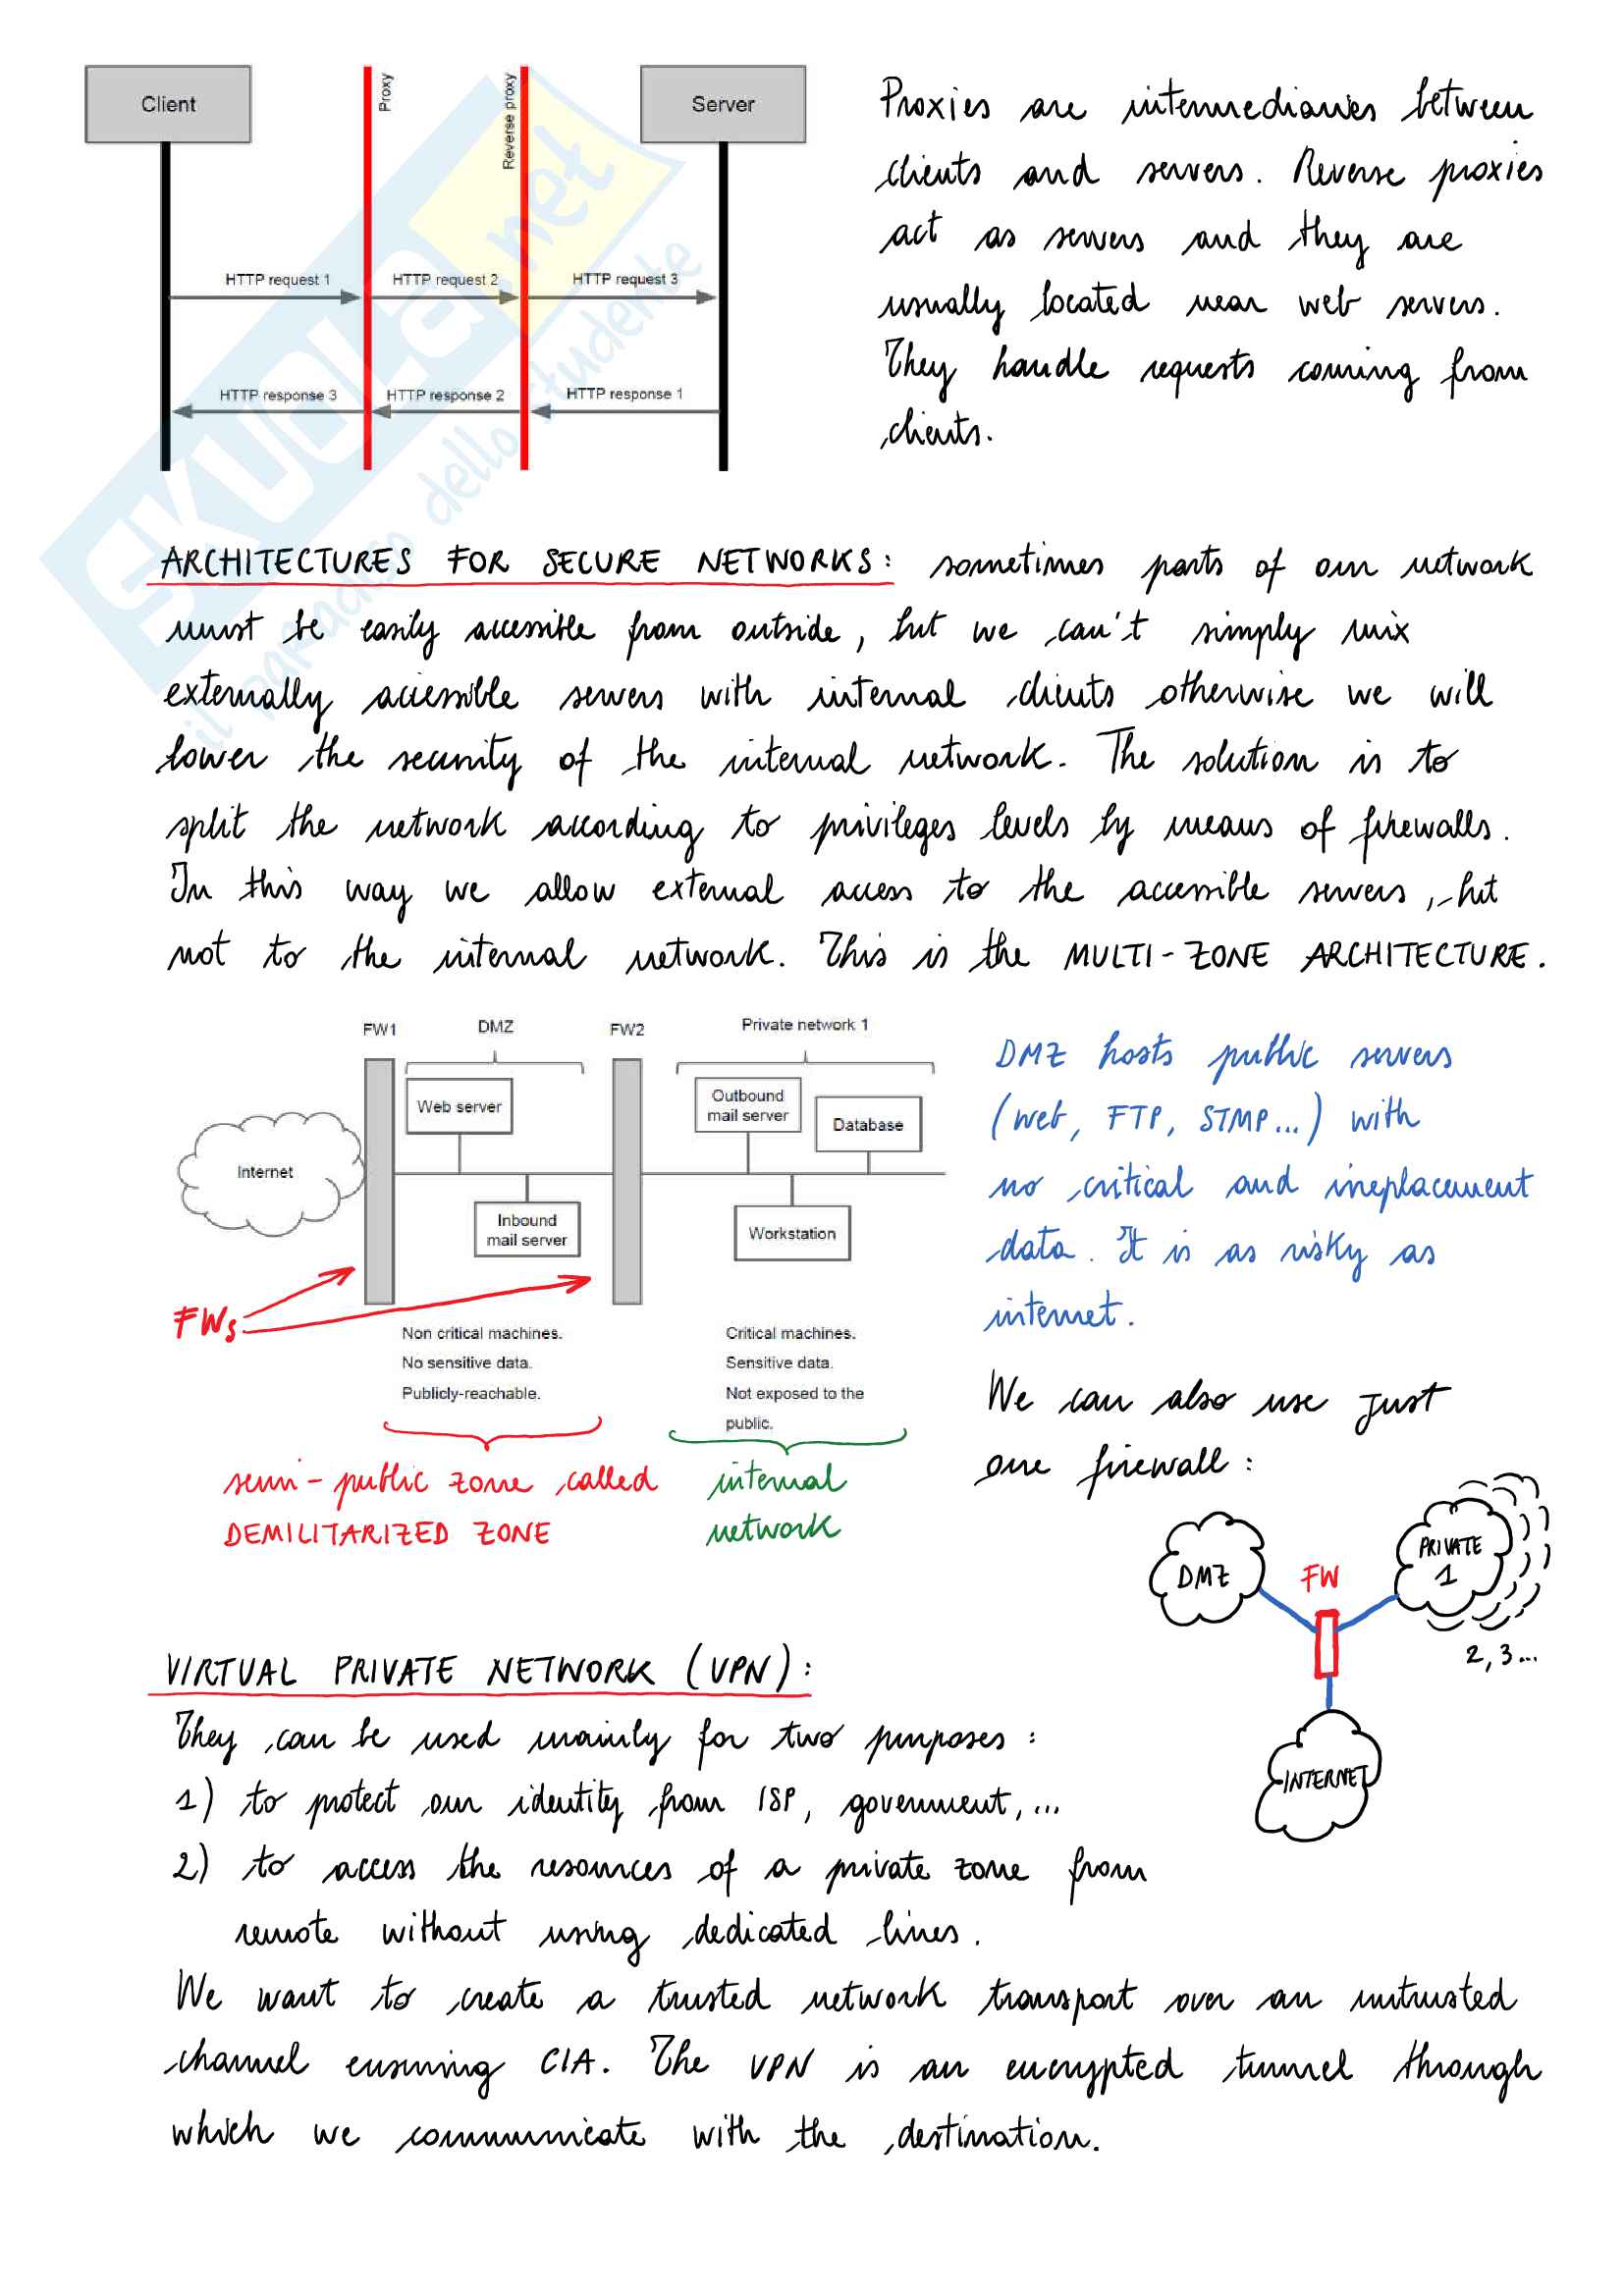 Client
Proxy
Reverse proxy
Server
HTTP request 1
HTTP request 2
HTTP request 3
HTTP response 3
HTTP response 2
HTTP response 1
Proxies are intermediaries between
clients and servers. Reverse proxies
act as servers and they are
usually located near web servers.
They handle requests coming from
clients.
SKUOLA.net
il paradiso dello studente
ARCHITECTURES FOR SECURE NETWORKS: sometimes parts of our network
must be easily accessible from outside, but we can't simply mix
externally accessible servers with internal clients otherwise we will
lower the security of the internal network. The solution is to
split the network according to privileges levels by means of firewalls.
In this way we allow external access to the accessible servers, but
not to the internal network. This is the MULTI-ZONE ARCHITECTURE.
FW1
DMZ
FW2
Private network 1
Web server
Outbound
mail server
Database
Internet
Inbound
mail server
Workstation
FWs
Non critical machines.
No sensitive data.
Publicly-reachable.
Critical machines.
Sensitive data.
Not exposed to the
public.
semi-public zone called
DEMILITARIZED ZONE
internal
network
DMZ hosts public servers
(web, FTP, STMP...) with
no critical and ireplacement
data. It is as risky as
internet.
We can also use just
one firewall:
DMZ
FW
PRIVATE
1
2,3...
INTERNET
VIRTUAL PRIVATE NETWORK (VPN):
They can be used mainly for two purposes:
1) to protect our identity from ISP, government,...
2) to access the resources of a private zone from
remote without using dedicated lines.
We want to create a trusted network transport over an untrusted
channel ensuring CIA. The VPN is an encrypted tunnel through
which we communicate with the destination.